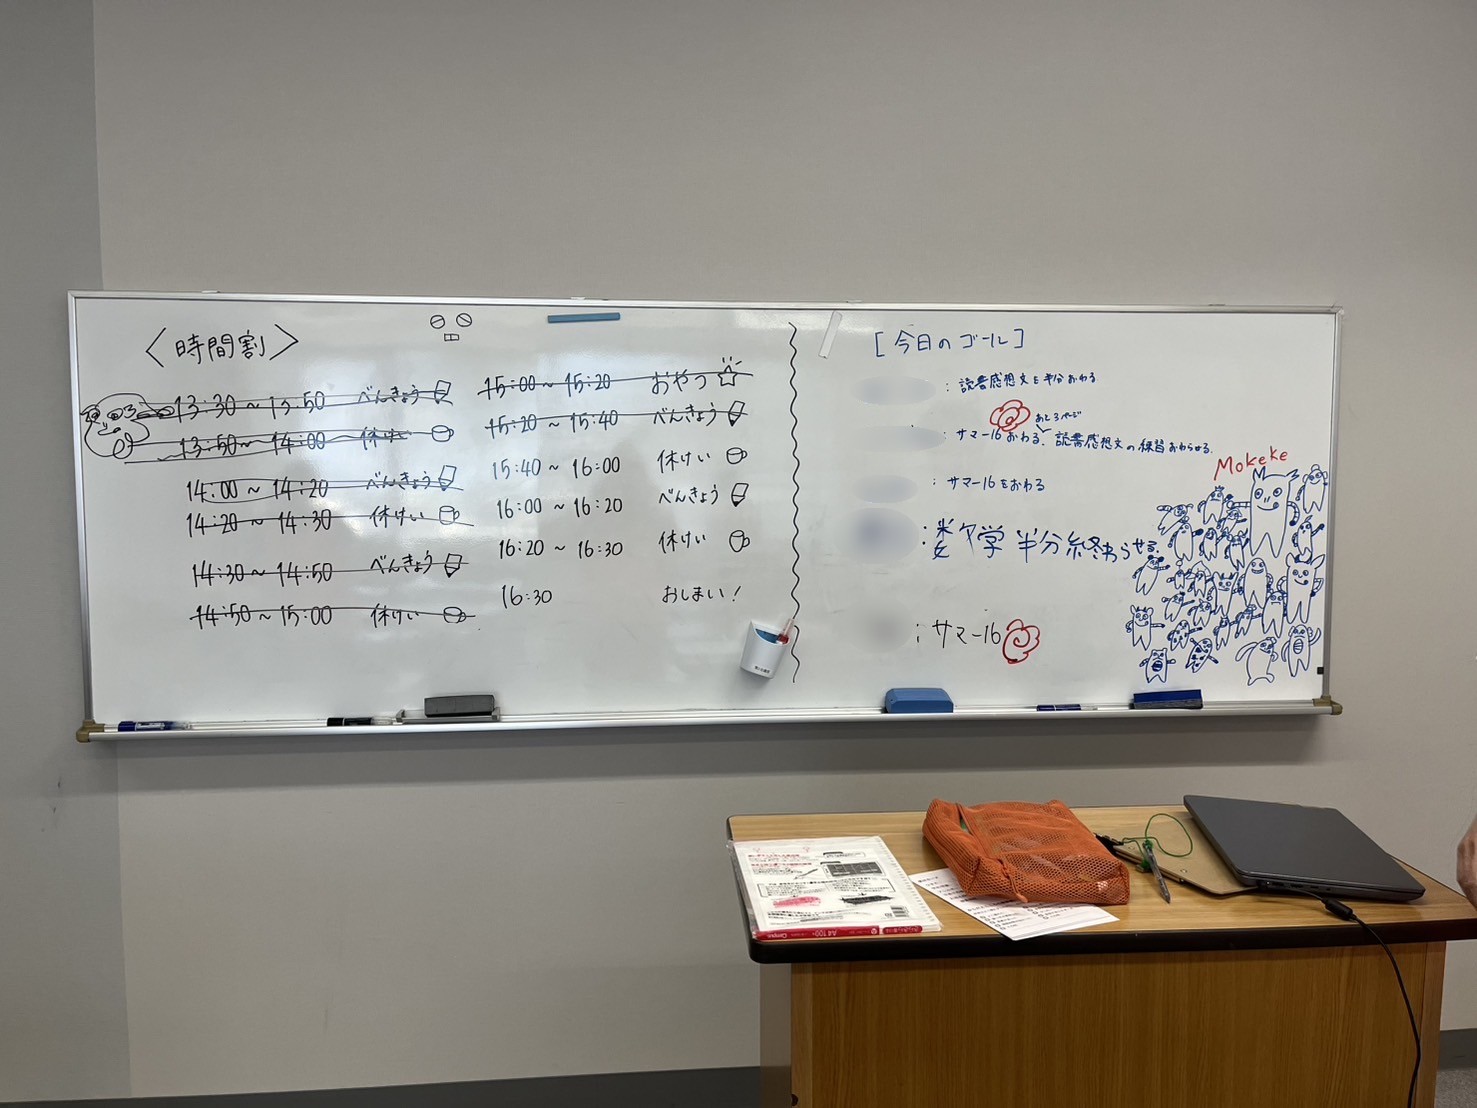 〈時間割〉
13:30 ~ 13:50 べんきょう
13:50 ~ 14:00 休けい
14:00 ~ 14:20 べんきょう
14:20 ~ 14:30 休けい
14:30 ~ 14:50 べんきょう
14:50 ~ 15:00 休けい
15:00 ~ 15:20 おやつ
15:20 ~ 15:40 べんきょう
15:40 ~ 16:00 休けい
16:00 ~ 16:20 べんきょう
16:20 ~ 16:30 休けい
16:30 おしまい!
[今日のゴール]
: 読書感想文を半分おわる
あと3ページ
: サマー16おわる、読書感想文の練習おわらせる.
: サマー16をおわる
: 数学半分終わらせる.
: サマー16
Mokeke
Campus A4 100